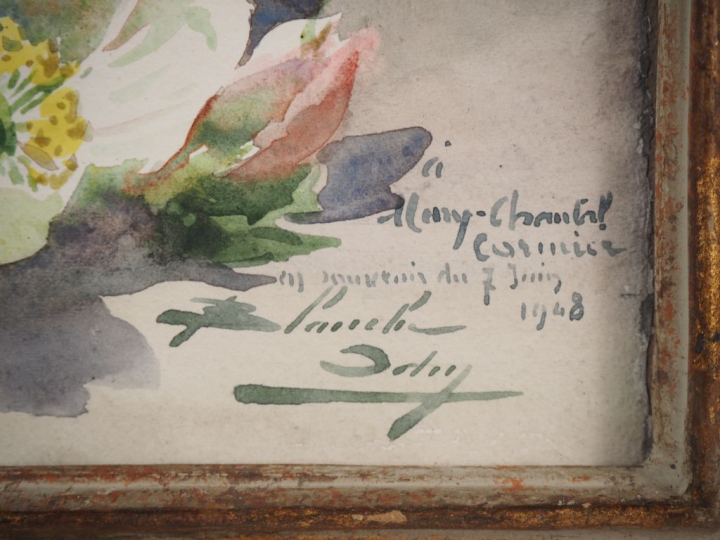 à
Mary-Chantal
Cormier
en souvenir du 7 Juin
1948
Blanche
Odin